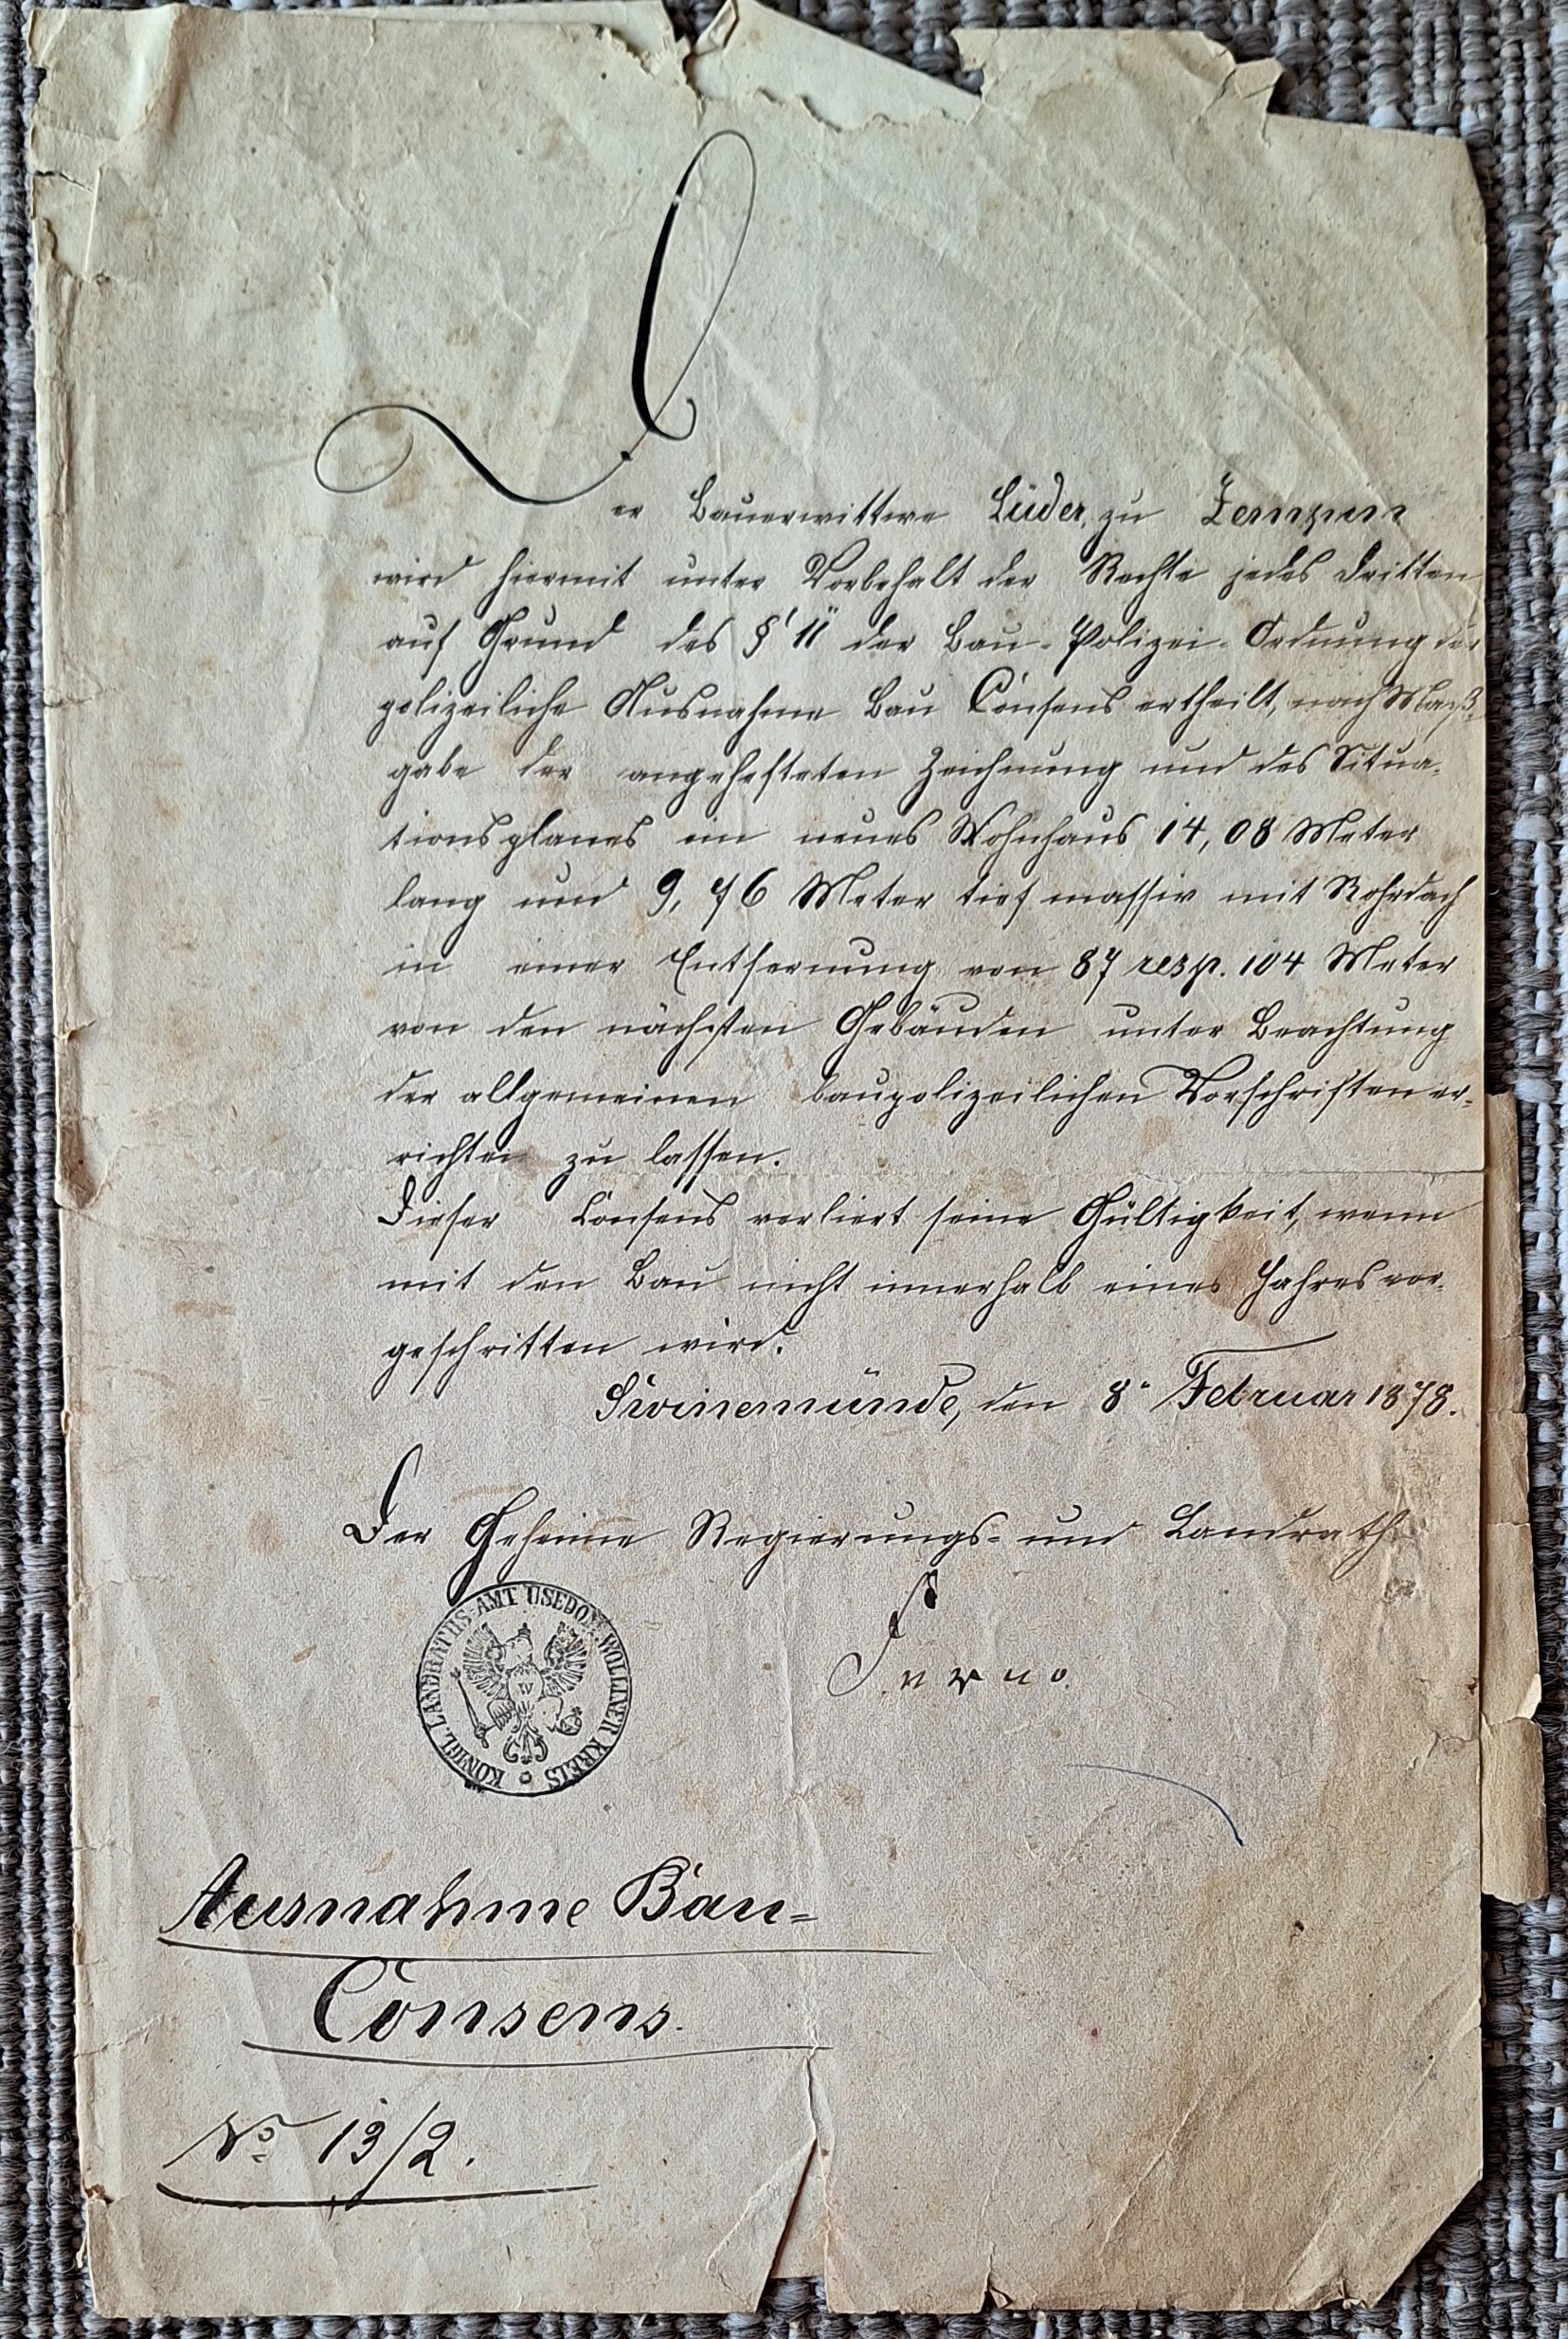 Der Bauerwittwe Lüder, zu Zempin
wird hiermit unter Vorbehalt der Rechte jedes Dritten
auf Grund des § 11 der Bau-Polizei-Ordnung der
polizeiliche Ausnahme Bau Consens ertheilt, nach Maß-
gabe der angehefteten Zeichnung und des Situa-
tionsplanes ein neues Wohnhaus 14,08 Meter
lang und 9,76 Meter tief massiv mit Rohrdach
in einer Entfernung von 87 resp. 104 Meter
von den nächsten Gebäuden unter Beachtung
der allgemeinen baupolizeilichen Vorschriften er-
richten zu lassen.
Dieser Consens verliert seine Gültigkeit, wenn
mit den Bau nicht innerhalb eines Jahres vor-
geschritten wird.
Swinemünde, den 8ᵗ Februar 1878.
Der Geheime Regierungs- und Landrath
KÖNIGL. LANDRATHS-AMT USEDOM-WOLLINER KREIS
Ausnahme Bau-
Consens.
No 13/2.